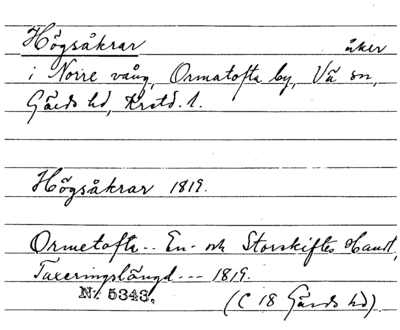 Högsåkrar åker
i Norre vång, Ormatofta by, Vä sn,
Gärds hd, Krstd. l.
Högsåkrar 1819.
Ormetofte -- En- och Storskiftes Handl,
Taxeringslängd --- 1819.
Nr 5343.
(C 18 Gärds hd).